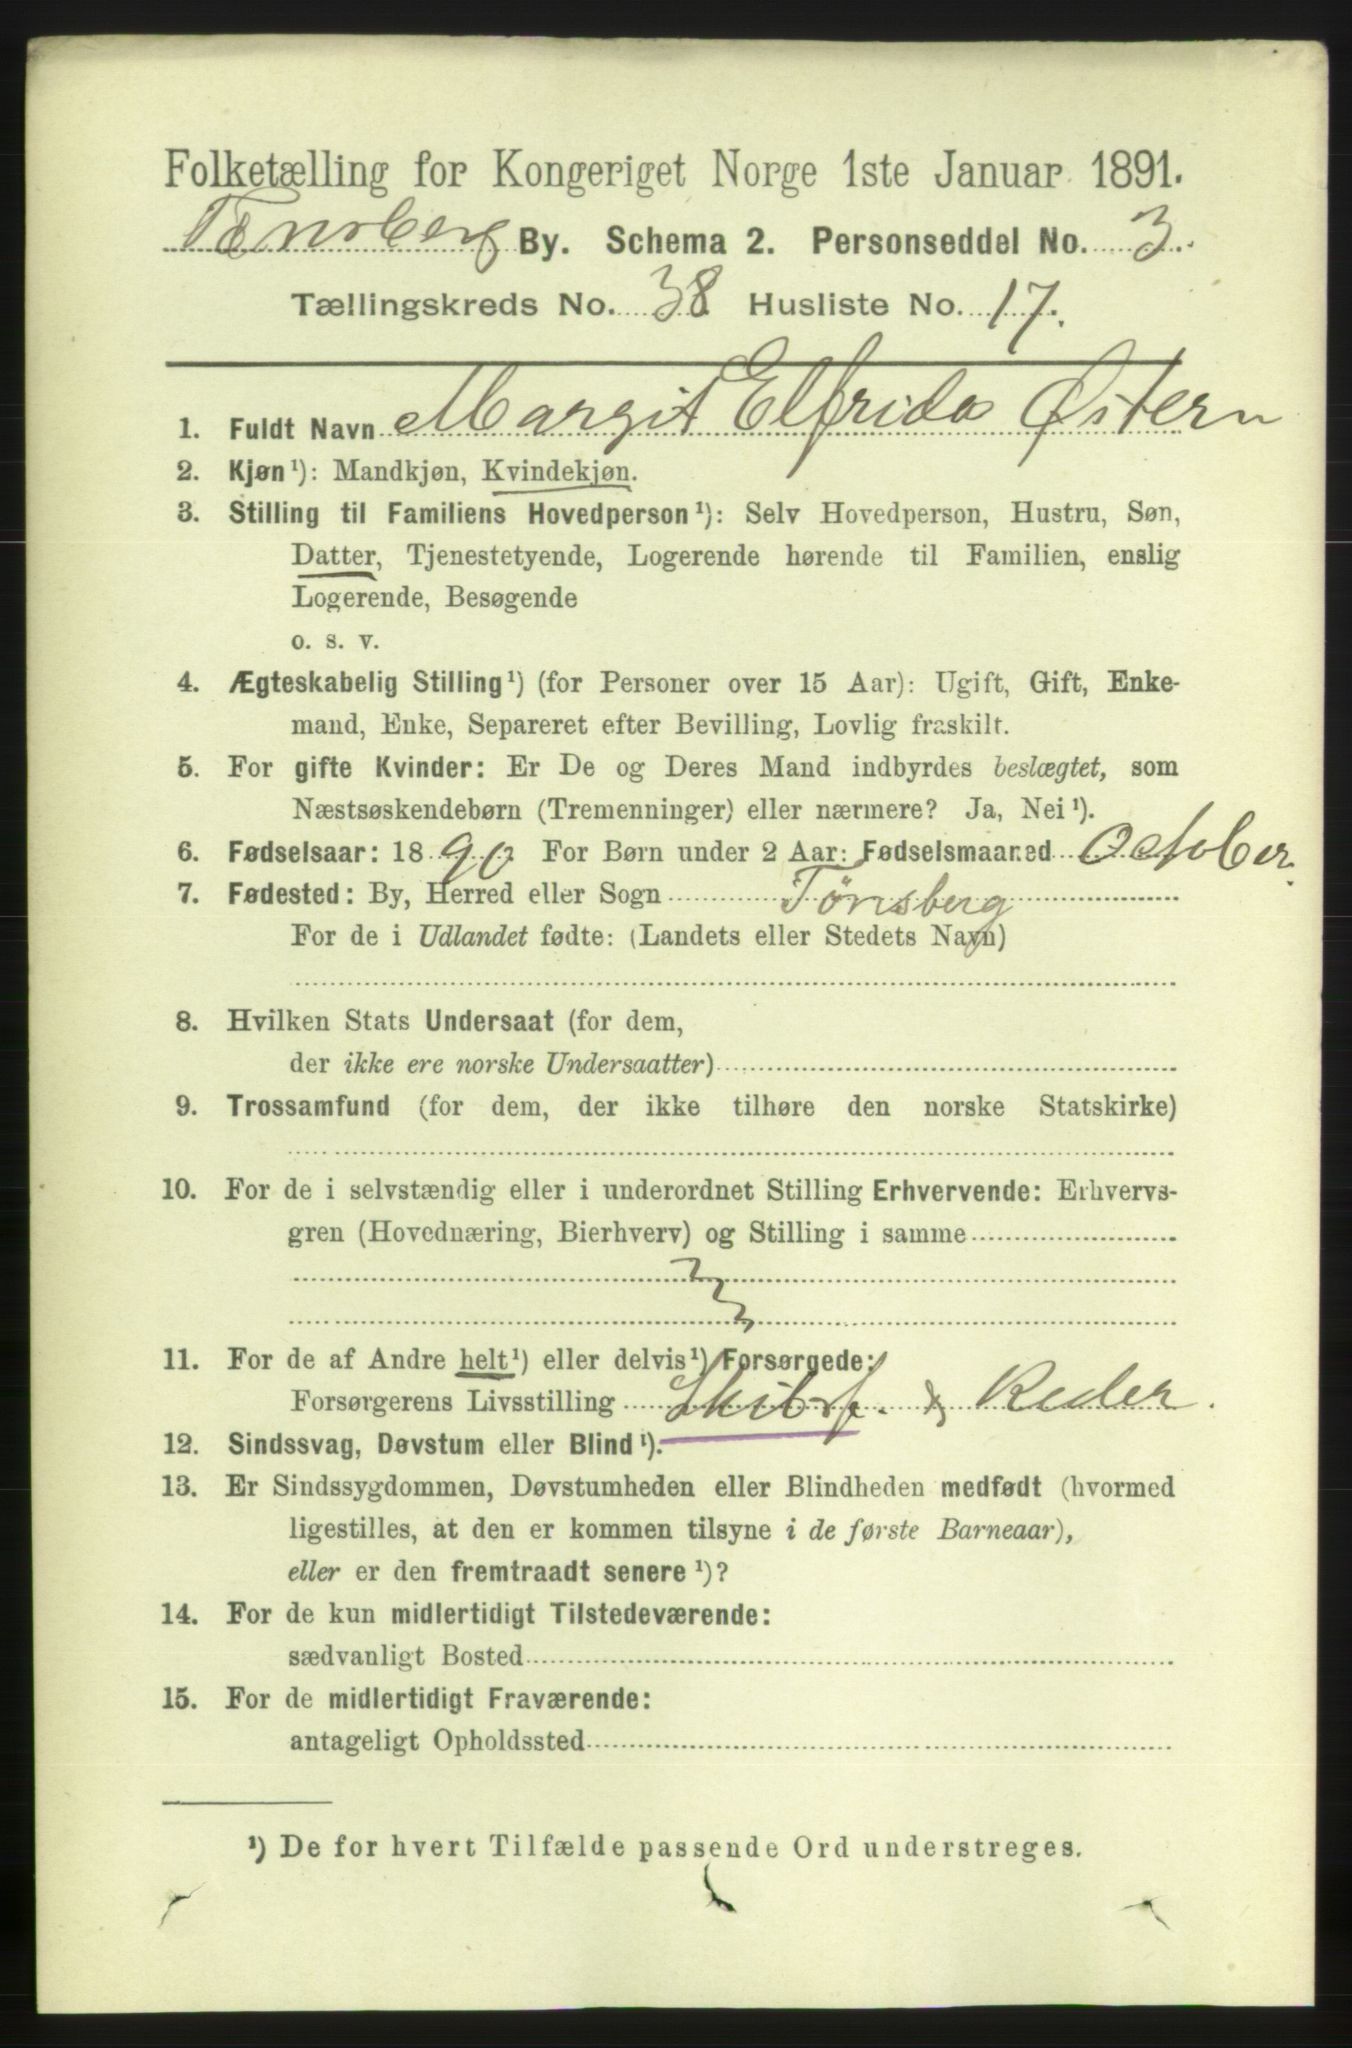 Folketælling for Kongeriget Norge 1ste Januar 1891.
Tønsberg By. Schema 2. Personseddel No. 3.
Tællingskreds No. 38 Husliste No. 17.
1. Fuldt Navn Margit Elfrida Østern
2. Kjøn¹): Mandkjøn, Kvindekjøn.
3. Stilling til Familiens Hovedperson¹): Selv Hovedperson, Hustru, Søn,
Datter, Tjenestetyende, Logerende hørende til Familien, enslig
Logerende, Besøgende
o. s. v.
4. Ægteskabelig Stilling¹) (for Personer over 15 Aar): Ugift, Gift, Enke-
mand, Enke, Separeret efter Bevilling, Lovlig fraskilt.
5. For gifte Kvinder: Er De og Deres Mand indbyrdes beslægtet, som
Næstsøskendebørn (Tremenninger) eller nærmere? Ja, Nei¹).
6. Fødselsaar: 1890 For Børn under 2 Aar: Fødselsmaaned October.
7. Fødested: By, Herred eller Sogn Tønsberg
For de i Udlandet fødte: (Landets eller Stedets Navn)
8. Hvilken Stats Undersaat (for dem,
der ikke ere norske Undersaatter)
9. Trossamfund (for dem, der ikke tilhøre den norske Statskirke)
10. For de i selvstændig eller i underordnet Stilling Erhvervende: Erhvervs-
gren (Hovednæring, Bierhverv) og Stilling i samme
11. For de af Andre helt¹) eller delvis¹) Forsørgede:
Forsørgerens Livsstilling Skibsf. & Reder.
12. Sindssvag, Døvstum eller Blind¹).
13. Er Sindssygdommen, Døvstumheden eller Blindheden medfødt (hvormed
ligestilles, at den er kommen tilsyne i de første Barneaar),
eller er den fremtraadt senere¹)?
14. For de kun midlertidigt Tilstedeværende:
sædvanligt Bosted
15. For de midlertidigt Fraværende:
antageligt Opholdssted
¹) De for hvert Tilfælde passende Ord understreges.